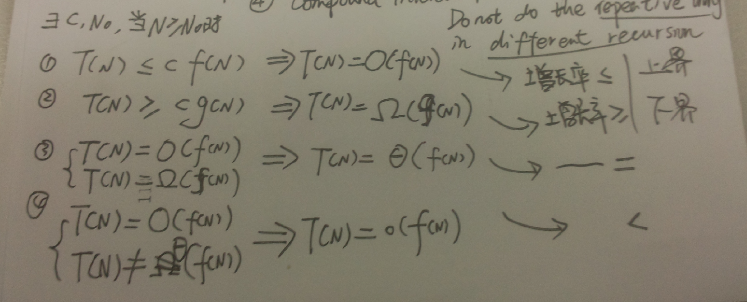 ④ Compound
Do not do the repetitive
in different recursion
∃ C, N₀, 当 N≥N₀时
① T(N) ≤ c f(N) ⇒ T(N)=O(f(N)) → 增长率 ≤ | 上界
② T(N) ≥ c g(N) ⇒ T(N)=Ω(g(N)) → 增长率 ≥ | 下界
③ { T(N)=O(f(N))
T(N)=Ω(f(N)) ⇒ T(N)=Θ(f(N)) → — =
④ { T(N)=O(f(N))
T(N)≠Θ(f(N)) ⇒ T(N)=o(f(N)) → <